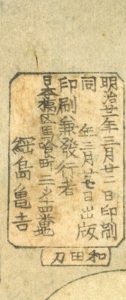 明治廿一年三月廿二日印刷
同年三月廿七日出版
印刷兼發行者
日本橋区馬喰町二ノ十四番地
綱島亀吉
和田刀